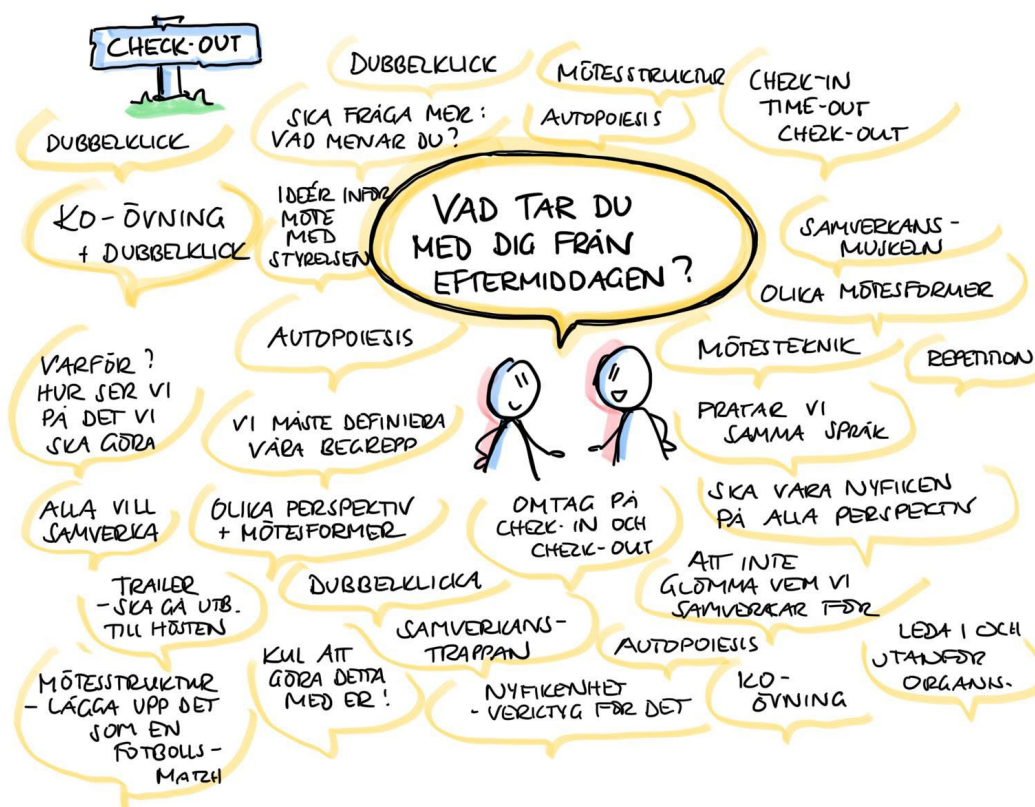 CHECK-OUT
DUBBELKLICK
MÖTESSTRUKTUR
CHECK-IN
TIME-OUT
CHECK-OUT
DUBBELKLICK
SKA FRÅGA MER:
VAD MENAR DU?
AUTOPOIESIS
KO-ÖVNING
+ DUBBELKLICK
IDEÉR INFÖR
MÖTE
MED
STYRELSEN
VAD TAR DU
MED DIG FRÅN
EFTERMIDDAGEN?
SAMVERKANS-
MUSKELN
OLIKA MÖTESFORMER
AUTOPOIESIS
MÖTESTEKNIK
REPETITION
VARFÖR?
HUR SER VI
PÅ DET VI
SKA GÖRA
VI MÅSTE DEFINIERA
VÅRA BEGREPP
PRATAR VI
SAMMA SPRÅK
ALLA VILL
SAMVERKA
OLIKA PERSPEKTIV
+ MÖTESFORMER
OMTAG PÅ
CHECK-IN OCH
CHECK-OUT
SKA VARA NYFIKEN
PÅ ALLA PERSPEKTIV
TRAILER
- SKA GÅ UTB.
TILL HÖSTEN
DUBBELKLICKA
ATT INTE
GLÖMMA VEM VI
SAMVERKAR FÖR
SAMVERKANS-
TRAPPAN
AUTOPOIESIS
LEDA I OCH
UTANFÖR
ORGANIS.
MÖTESSTRUKTUR
- LÄGGA UPP DET
SOM EN
FOTBOLLS-
MATCH
KUL ATT
GÖRA DETTA
MED ER!
NYFIKENHET
- VERKTYG FÖR DET
KO-
ÖVNING